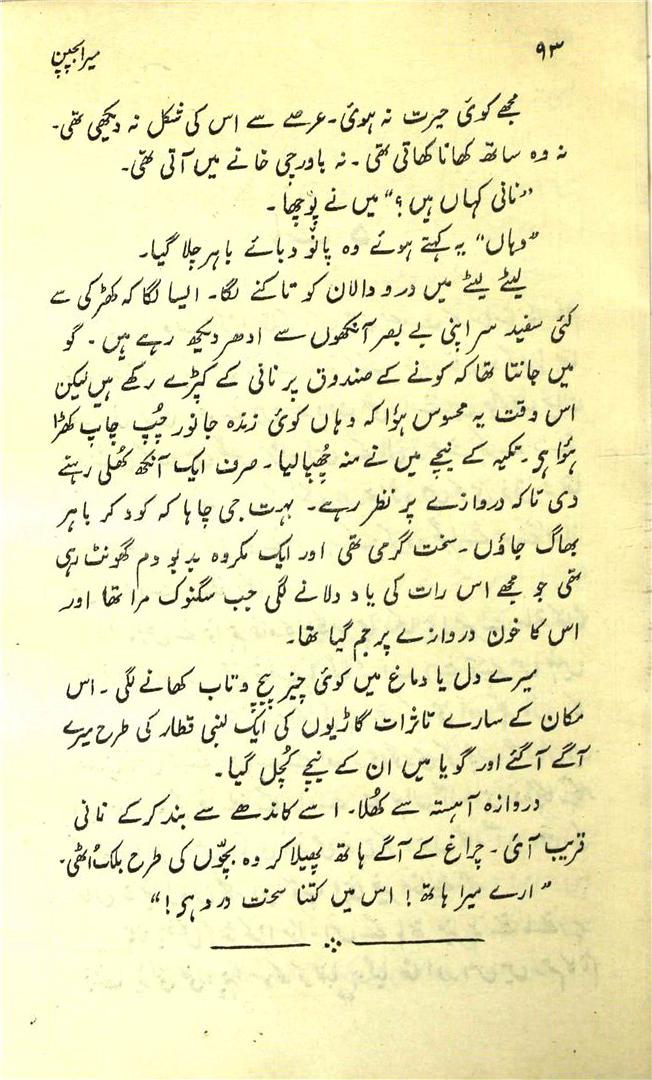 ۹۳
میرا بچپن
مجھے کوئی حیرت نہ ہوئی۔ عرصے سے اس کی شکل نہ دیکھی تھی۔
نہ وہ ساتھ کھانا کھاتی تھی۔ نہ باورچی خانے میں آتی تھی۔
"نانی کہاں ہیں؟" میں نے پوچھا۔
"وہاں" یہ کہتے ہوئے وہ پانو دبائے باہر چلا گیا۔
لیٹے لیٹے میں در و دالان کو تاکنے لگا۔ ایسا لگا کہ کھڑکی سے
کئی سفید سر اپنی بے بصر آنکھوں سے ادھر دیکھ رہے ہیں۔ گو
میں جانتا تھا کہ کونے کے صندوق پر نانی کے کپڑے رکھے ہیں لیکن
اس وقت یہ محسوس ہؤا کہ وہاں کوئی زندہ جانور چُپ چاپ کھڑا
ہؤا ہی۔ تکیہ کے نیچے میں نے منہ چھُپا لیا۔ صرف ایک آنکھ کھُلی رہنے
دی تاکہ دروازے پر نظر رہے۔ بہت جی چاہا کہ کود کر باہر
بھاگ جاؤں۔ سخت گرمی تھی اور ایک مکروہ بدبو دم گھونٹ رہی
تھی جو مجھے اس رات کی یاد دلانے لگی جب سگنوک مرا تھا اور
اس کا خون دروازے پر جم گیا تھا۔
میرے دل یا دماغ میں کوئی چیز پیچ و تاب کھانے لگی۔ اس
مکان کے سارے تاثرات گاڑیوں کی ایک لنبی قطار کی طرح میرے
آگے آ گئے اور گویا میں ان کے نیچے کُچل گیا۔
دروازہ آہستہ سے کھُلا۔ اسے کاندھے سے بند کرکے نانی
قریب آئی۔ چراغ کے آگے ہاتھ پھیلا کر وہ بچّوں کی طرح بلک اُٹھی۔
"ارے میرا ہاتھ! اس میں کتنا سخت درد ہی!"